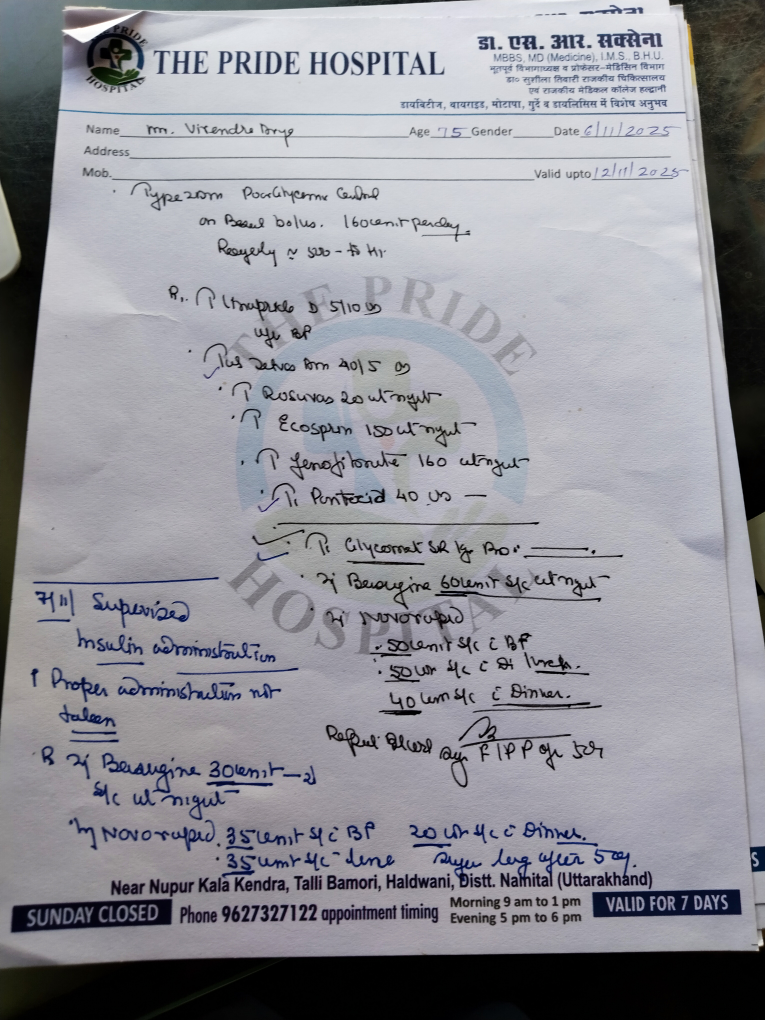 THE PRIDE HOSPITAL
THE PRIDE HOSPITAL
डा. एस. आर. सक्सेना
MBBS, MD (Medicine), I.M.S., B.H.U.
भूतपूर्व विभागाध्यक्ष व प्रोफेसर-मेडिसिन विभाग
डा० सुशीला तिवारी राजकीय चिकित्सालय
एवं राजकीय मेडिकल कॉलेज हल्द्वानी
डायबिटीज, थायराइड, मोटापा, गुर्दे व डायलिसिस में विशेष अनुभव
Name Mr. Virendra Age 75 Gender Date 6/11/2025
Address
Mob. Valid upto 12/11/2025
Type 2 DM Poor Glycemic Control
on Basal bolus. 160 unit per day.
D 5/10
BP
40/5
T Rosuvas 20 at night
T Ecosprin 150 at night
T Fenofibrate 160 at night
T. Pantocid 40
THE PRIDE HOSPITAL
T. Glycomet SR
Basugine 60 unit s/c at night
Novorapid
50 unit s/c c BP
50 s/c c
40 s/c c Dinner.
F/PP
7/11 Supervised
Insulin administration
↑ Proper administration not
taken
R Basugine 30 unit
s/c at night
Novorapid. 35 unit s/c c BP 20 s/c c Dinner.
35 unit s/c after 5
Near Nupur Kala Kendra, Talli Bamori, Haldwani, Distt. Nainital (Uttarakhand)
SUNDAY CLOSED Phone 9627327122 appointment timing Morning 9 am to 1 pm
Evening 5 pm to 6 pm VALID FOR 7 DAYS